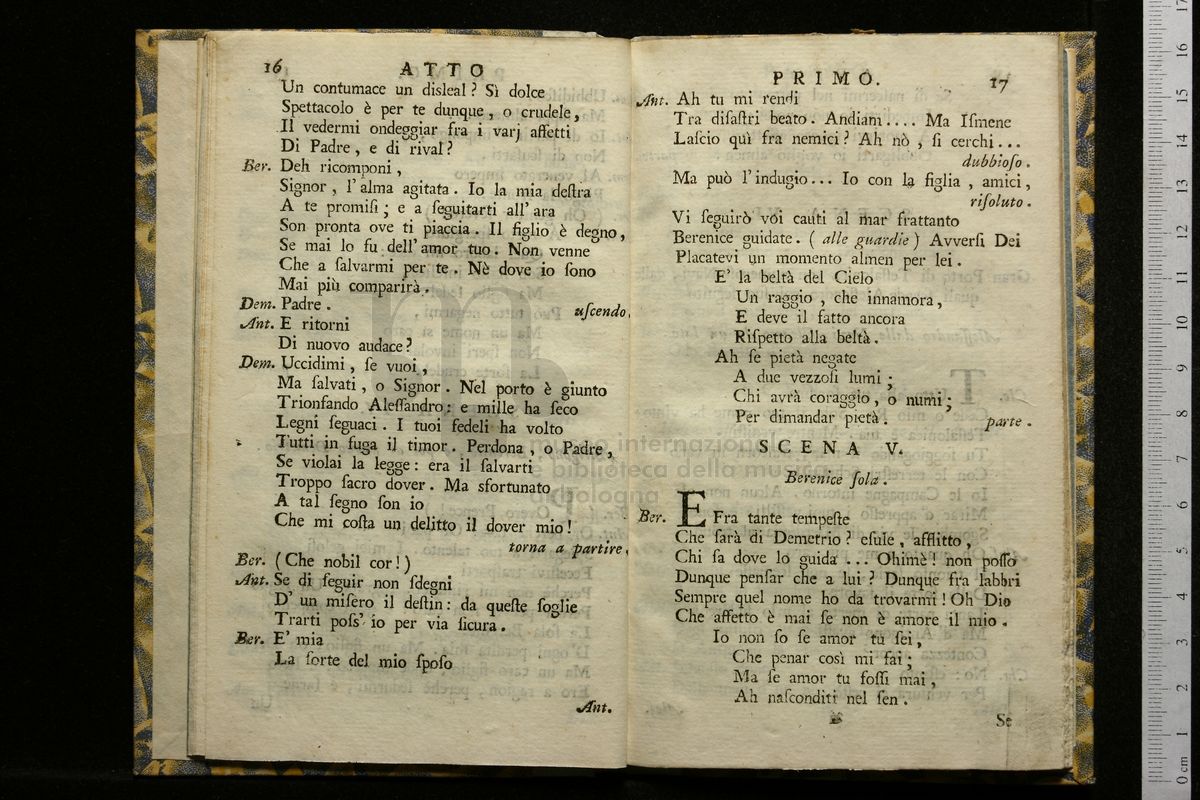 16 ATTO
Un contumace un disleal? Sì dolce
Spettacolo è per te dunque, o crudele,
Il vedermi ondeggiar fra i varj affetti
Di Padre, e di rival?
Ber. Deh ricomponi,
Signor, l'alma agitata. Io la mia deſtra
A te promiſi; e a ſeguitarti all'ara
Son pronta ove ti piaccia. Il figlio è degno,
Se mai lo fu dell'amor tuo. Non venne
Che a ſalvarmi per te. Nè dove io ſono
Mai più comparirà.
Dem. Padre. uſcendo.
Ant. E ritorni
Di nuovo audace?
Dem. Uccidimi, ſe vuoi,
Ma ſalvati, o Signor. Nel porto è giunto
Trionfando Aleſſandro: e mille ha ſeco
Legni ſeguaci. I tuoi fedeli ha volto
Tutti in fuga il timor. Perdona, o Padre,
Se violai la legge: era il ſalvarti
Troppo ſacro dover. Ma sfortunato
A tal ſegno ſon io
Che mi coſta un delitto il dover mio!
torna a partire.
Ber. (Che nobil cor!)
Ant. Se di ſeguir non ſdegni
D' un miſero il deſtin: da queſte ſoglie
Trarti poſs' io per via ſicura.
Ber. E' mia
La ſorte del mio ſpoſo
Ant.
PRIMO. 17
Ant. Ah tu mi rendi
Tra diſaſtri beato. Andiam.... Ma Iſmene
Laſcio quì fra nemici? Ah nò, ſi cerchi...
dubbioſo.
Ma può l'indugio... Io con la figlia, amici,
riſoluto.
Vi ſeguirò voi cauti al mar frattanto
Berenice guidate. (alle guardie) Avverſi Dei
Placatevi un momento almen per lei.
E' la beltà del Cielo
Un raggio, che innamora,
E deve il fatto ancora
Riſpetto alla beltà.
Ah ſe pietà negate
A due vezzoſi lumi;
Chi avrà coraggio, o numi;
Per dimandar pietà. parte.
SCENA V.
Berenice ſola.
Ber. E Fra tante tempeſte
Che ſarà di Demetrio? eſule, afflitto,
Chi ſa dove lo guida ... Ohimè! non poſſo
Dunque penſar che a lui? Dunque fra labbri
Sempre quel nome ho da trovarmi! Oh Dio
Che affetto è mai ſe non è amore il mio.
Io non ſo ſe amor tu ſei,
Che penar così mi fai;
Ma ſe amor tu foſſi mai,
Ah naſconditi nel ſen.
Se
museo internazionale
e biblioteca della musica
di bologna
0 cm 1 2 3 4 5 6 7 8 9 10 11 12 13 14 15 16 17